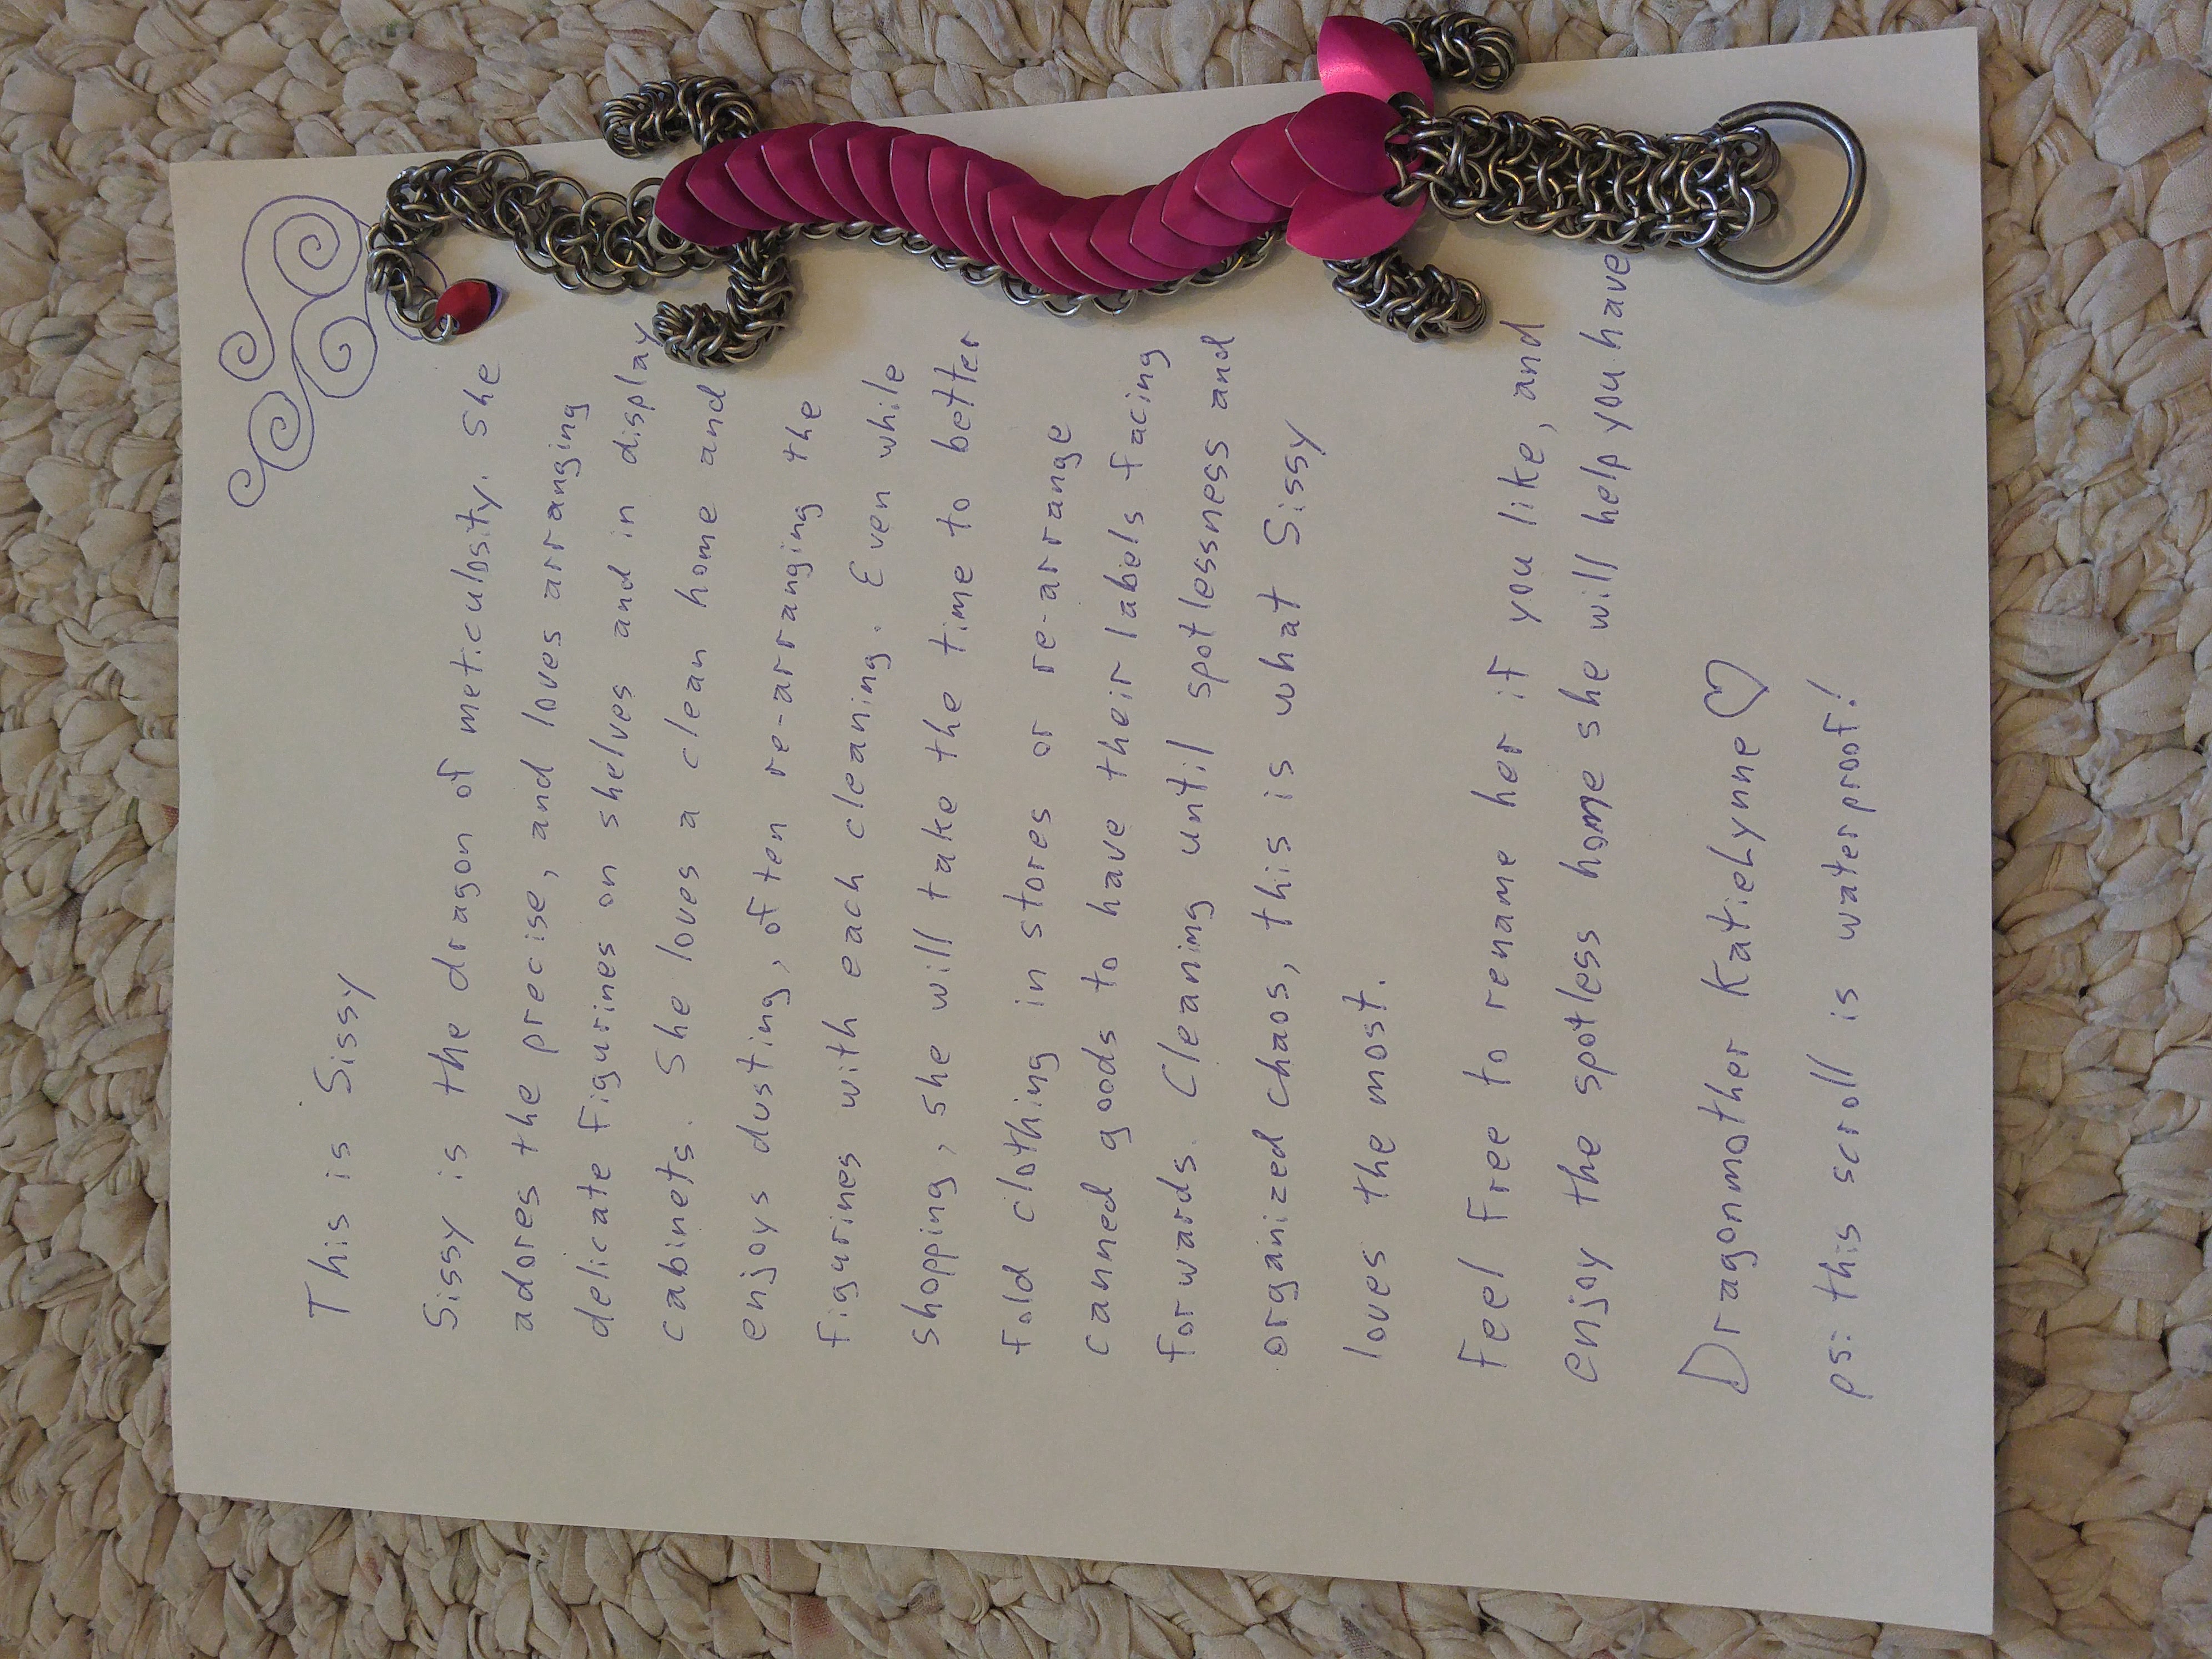 This is Sissy
Sissy is the dragon of meticulosity. She
adores the precise, and loves arranging
delicate figurines on shelves and in display
cabinets. She loves a clean home and
enjoys dusting, often re-arranging the
figurines with each cleaning. Even while
shopping, she will take the time to better
fold clothing in stores or re-arrange
canned goods to have their labels facing
forwards. Cleaning until spotlessness and
organized chaos, this is what Sissy
loves the most.
Feel free to rename her if you like, and
enjoy the spotless home she will help you have
Dragonmother KatieLynne♡
ps: this scroll is waterproof!